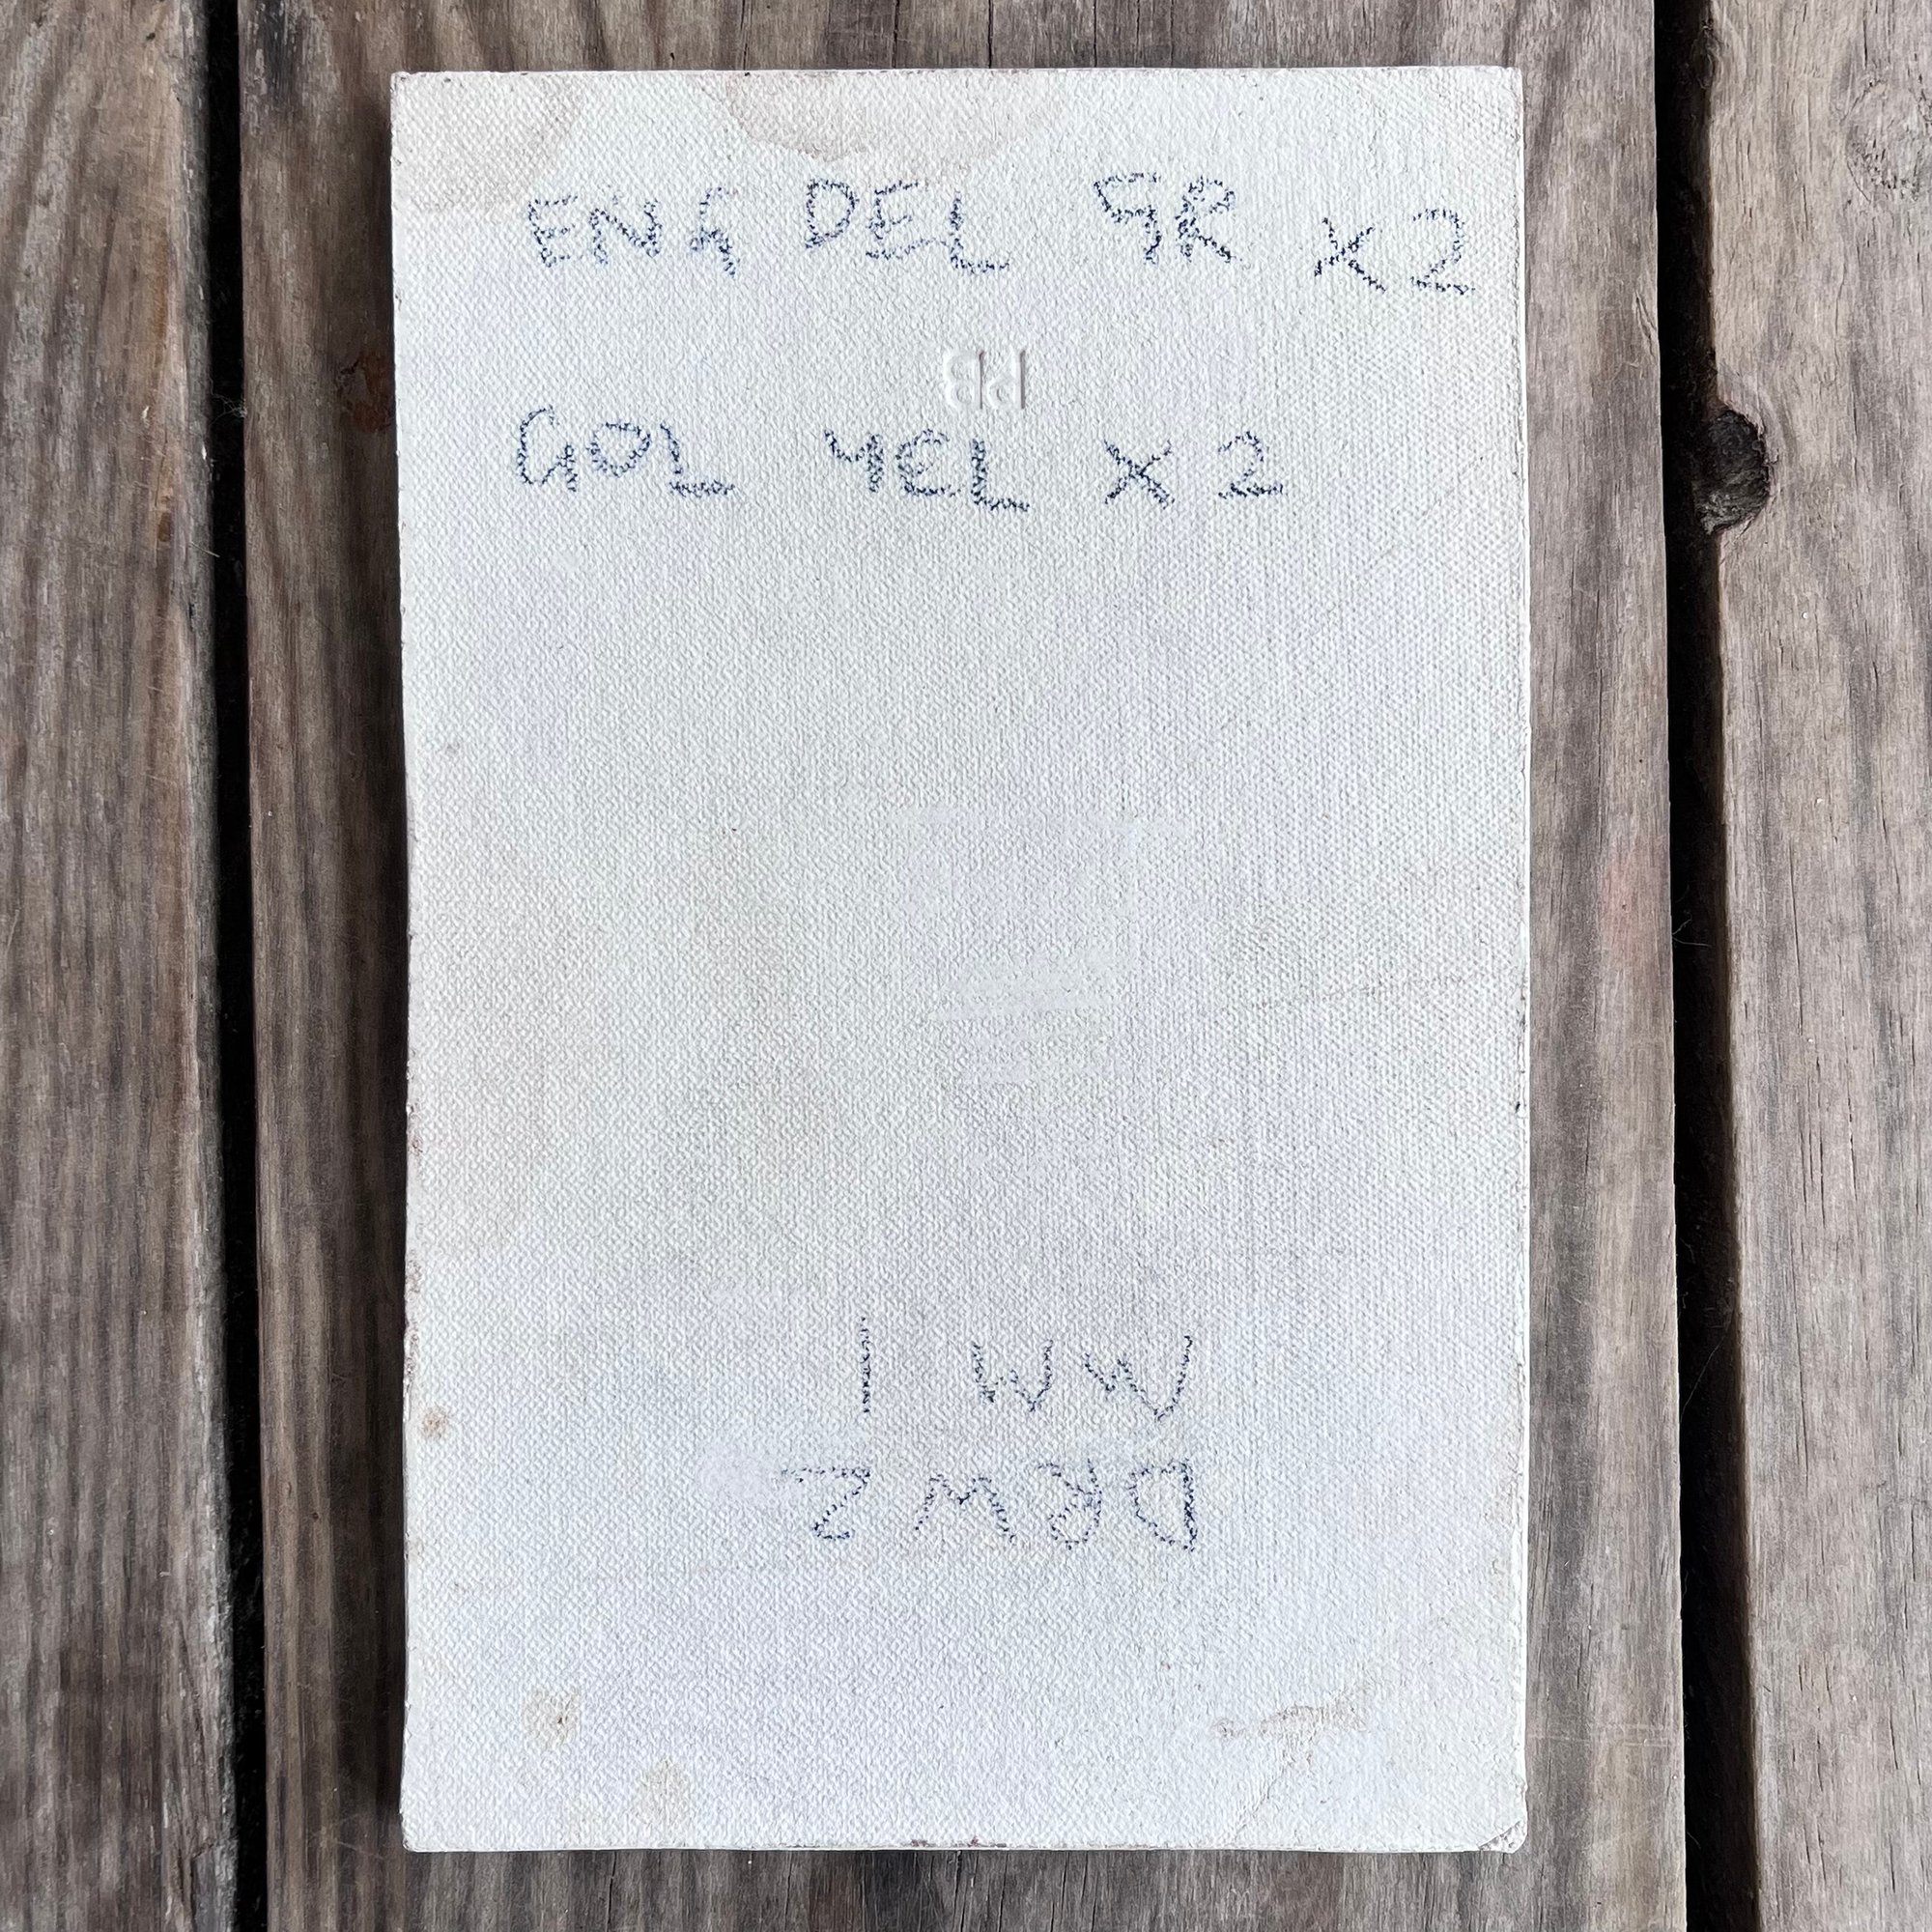 ENG DEL GR X2
GOL YEL X 2
DRW 2
MM 1